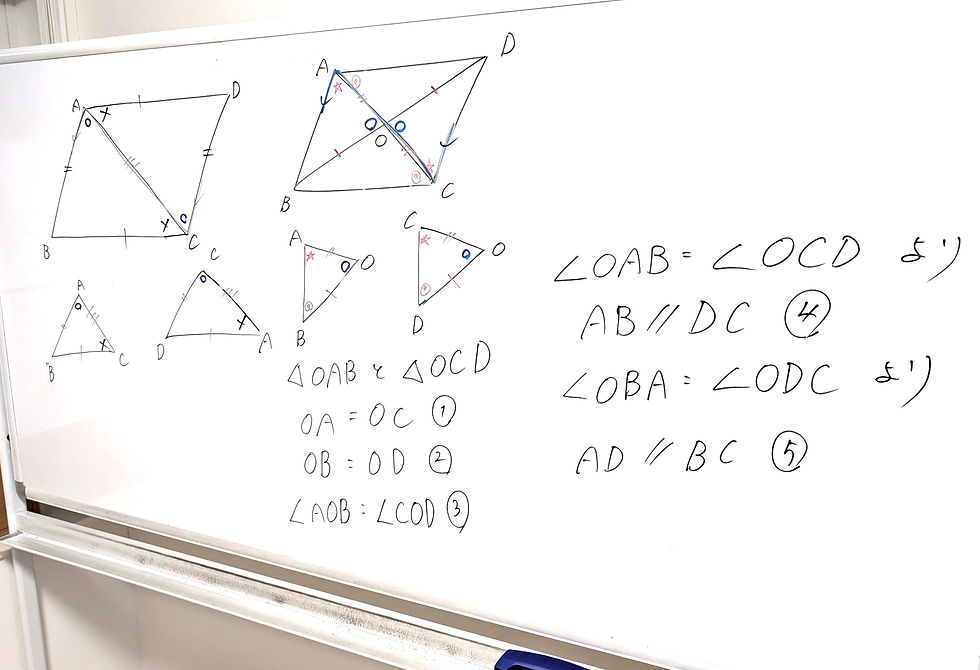 A D
B C
A D
O
B C
A
B C
C
D A
A O
B
C O
D
△OABと△OCD
OA = OC ①
OB = OD ②
∠AOB = ∠COD ③
∠OAB = ∠OCD より
AB // DC ④
∠OBA = ∠ODC より
AD // BC ⑤